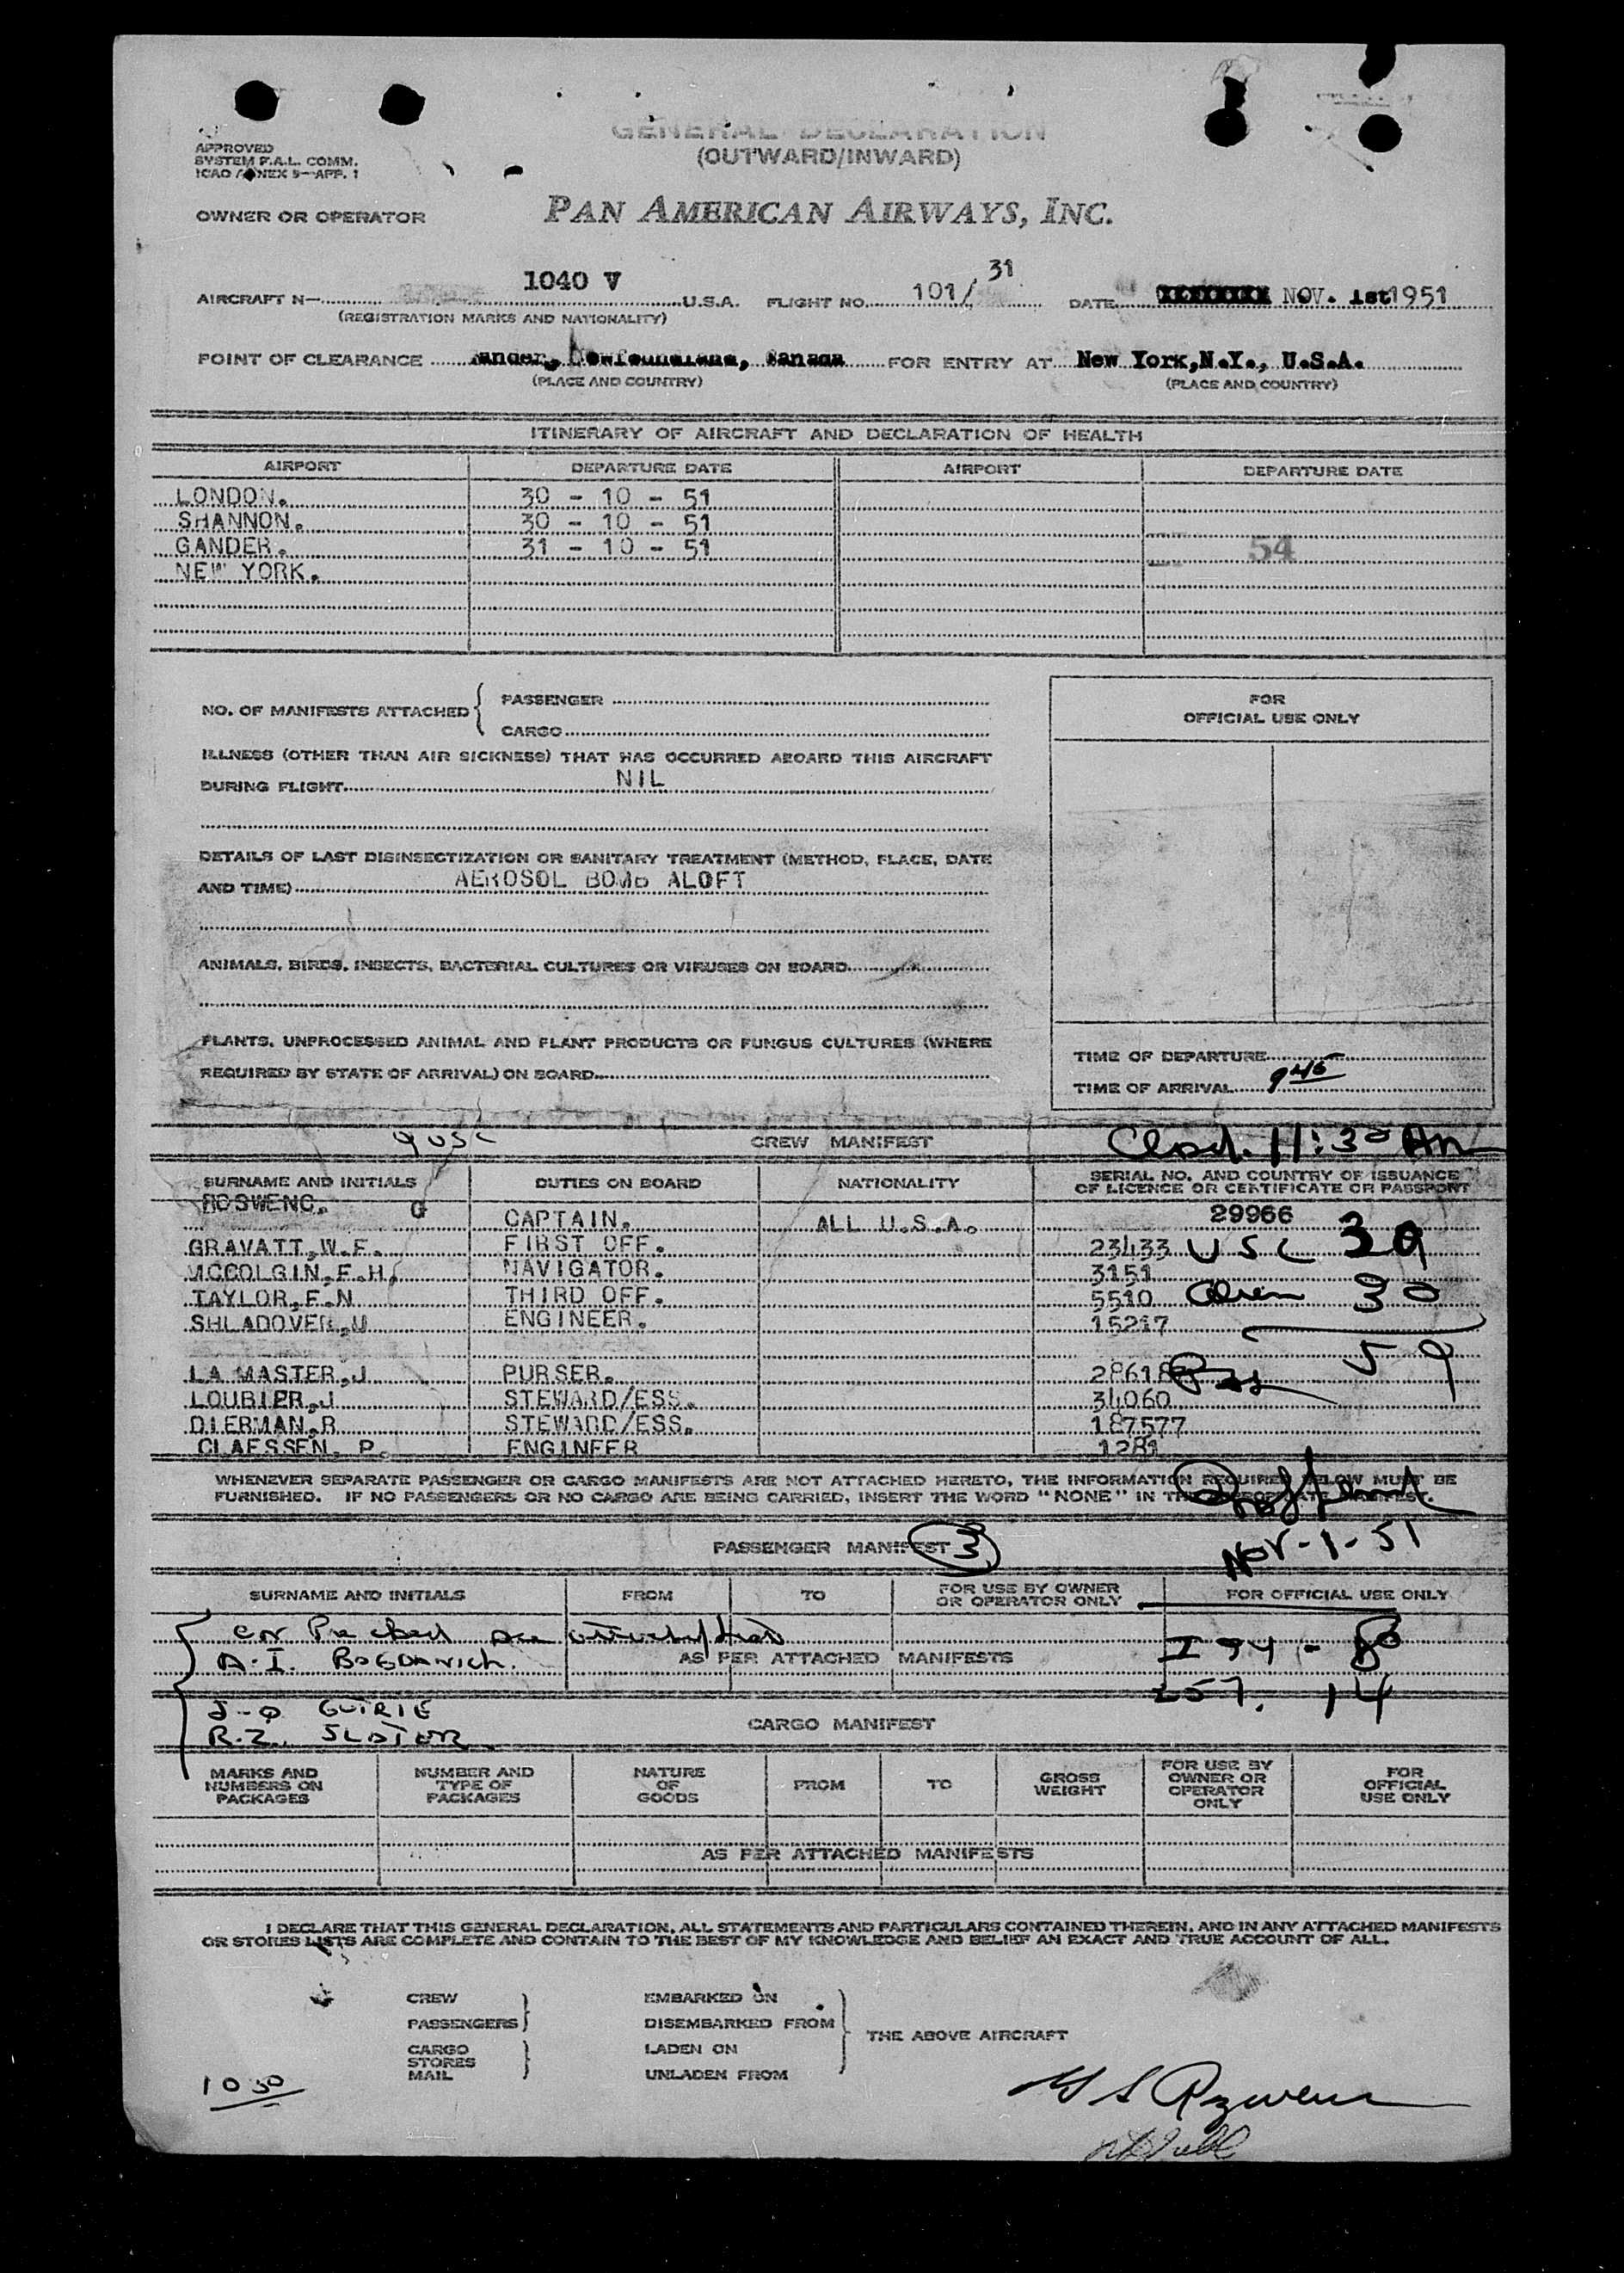 GENERAL DECLARATION
(OUTWARD/INWARD)
APPROVED
SYSTEM F.A.L. COMM.
ICAO ANNEX 9—APP. 1
OWNER OR OPERATOR PAN AMERICAN AIRWAYS, INC.
AIRCRAFT N— 1040 V U.S.A. FLIGHT NO. 101/31 DATE NOV. 1st 1951
(REGISTRATION MARKS AND NATIONALITY)
POINT OF CLEARANCE Gander, Newfoundland, Canada FOR ENTRY AT New York,N.Y., U.S.A.
(PLACE AND COUNTRY) (PLACE AND COUNTRY)
ITINERARY OF AIRCRAFT AND DECLARATION OF HEALTH
AIRPORT DEPARTURE DATE AIRPORT DEPARTURE DATE
LONDON. 30 - 10 - 51
SHANNON. 30 - 10 - 51
GANDER. 31 - 10 - 51 54
NEW YORK.
NO. OF MANIFESTS ATTACHED { PASSENGER
CARGO
FOR
OFFICIAL USE ONLY
ILLNESS (OTHER THAN AIR SICKNESS) THAT HAS OCCURRED ABOARD THIS AIRCRAFT
DURING FLIGHT NIL
DETAILS OF LAST DISINSECTIZATION OR SANITARY TREATMENT (METHOD, PLACE, DATE
AND TIME) AEROSOL BOMB ALOFT
ANIMALS, BIRDS, INSECTS, BACTERIAL CULTURES OR VIRUSES ON BOARD
PLANTS, UNPROCESSED ANIMAL AND PLANT PRODUCTS OR FUNGUS CULTURES (WHERE
REQUIRED BY STATE OF ARRIVAL) ON BOARD
TIME OF DEPARTURE
TIME OF ARRIVAL 9 45
9 USC CREW MANIFEST Closd. 11:30 AM
SURNAME AND INITIALS DUTIES ON BOARD NATIONALITY SERIAL NO. AND COUNTRY OF ISSUANCE
OF LICENCE OR CERTIFICATE OR PASSPORT
G CAPTAIN. ALL U.S.A. 29966
GRAVATT,W.F. FIRST OFF. 23433 USC 29
MCCOLGIN,F.H. NAVIGATOR. 3151
TAYLOR,F.N THIRD OFF. 5510 Alien 30
SHLADOVER,U ENGINEER. 15217
59
LA MASTER,J PURSER. 28618 Pas
LOUBIER,J STEWARD/ESS. 34060
DIERMAN,R STEWARD/ESS. 187577
CLAESSEN, P. ENGINEER 1281
WHENEVER SEPARATE PASSENGER OR CARGO MANIFESTS ARE NOT ATTACHED HERETO, THE INFORMATION REQUIRED BELOW MUST BE
FURNISHED. IF NO PASSENGERS OR NO CARGO ARE BEING CARRIED, INSERT THE WORD "NONE" IN THE APPROPRIATE MANIFEST.
PASSENGER MANIFEST 3 Nov-1-51
SURNAME AND INITIALS FROM TO FOR USE BY OWNER
OR OPERATOR ONLY FOR OFFICIAL USE ONLY
I 94 -
A.I. BOGDANICH. AS PER ATTACHED MANIFESTS
257. 14
GUTRIE
CARGO MANIFEST
R.Z. SLATER
MARKS AND
NUMBERS ON
PACKAGES
NUMBER AND
TYPE OF
PACKAGES
NATURE
OF
GOODS
FROM
TO
GROSS
WEIGHT
FOR USE BY
OWNER OR
OPERATOR
ONLY
FOR
OFFICIAL
USE ONLY
AS PER ATTACHED MANIFESTS
I DECLARE THAT THIS GENERAL DECLARATION, ALL STATEMENTS AND PARTICULARS CONTAINED THEREIN, AND IN ANY ATTACHED MANIFESTS
OR STORES LISTS ARE COMPLETE AND CONTAIN TO THE BEST OF MY KNOWLEDGE AND BELIEF AN EXACT AND TRUE ACCOUNT OF ALL.
CREW
PASSENGERS
CARGO
STORES
MAIL
EMBARKED ON
DISEMBARKED FROM
LADEN ON
UNLADEN FROM
THE ABOVE AIRCRAFT
1030